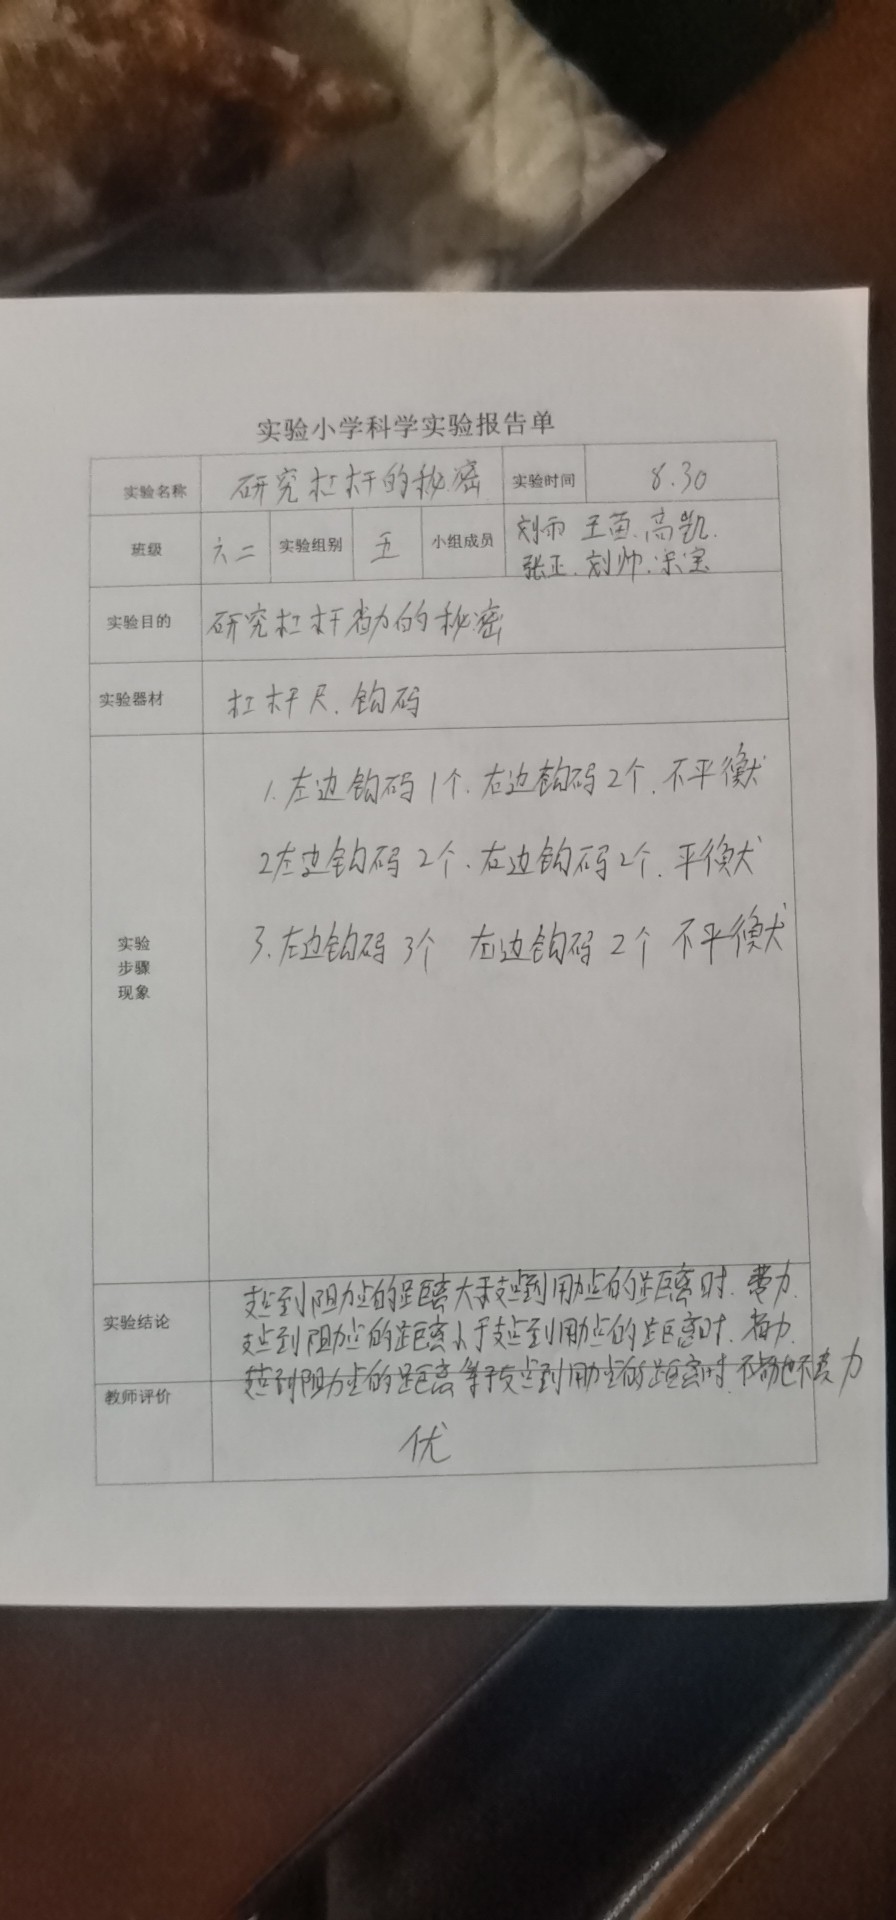 实验小学科学实验报告单
实验名称 研究杠杆的秘密 实验时间 8.30
班级 六二 实验组别 五 小组成员 刘雨 王苗.高凯.
张正.刘帅.宋宝
实验目的 研究杠杆省力的秘密
实验器材 杠杆尺.钩码
1.左边钩码1个.右边钩码2个.不平衡
2左边钩码2个.右边钩码2个.平衡
3.左边钩码3个 右边钩码2个 不平衡
实验
步骤
现象
支点到阻力点的距离大于支点到用力点的距离时.费力.
实验结论 支点到阻力点的距离小于支点到用力点的距离时.省力.
支点到阻力点的距离等于支点到用力点的距离时.不省力也不费力
教师评价
优